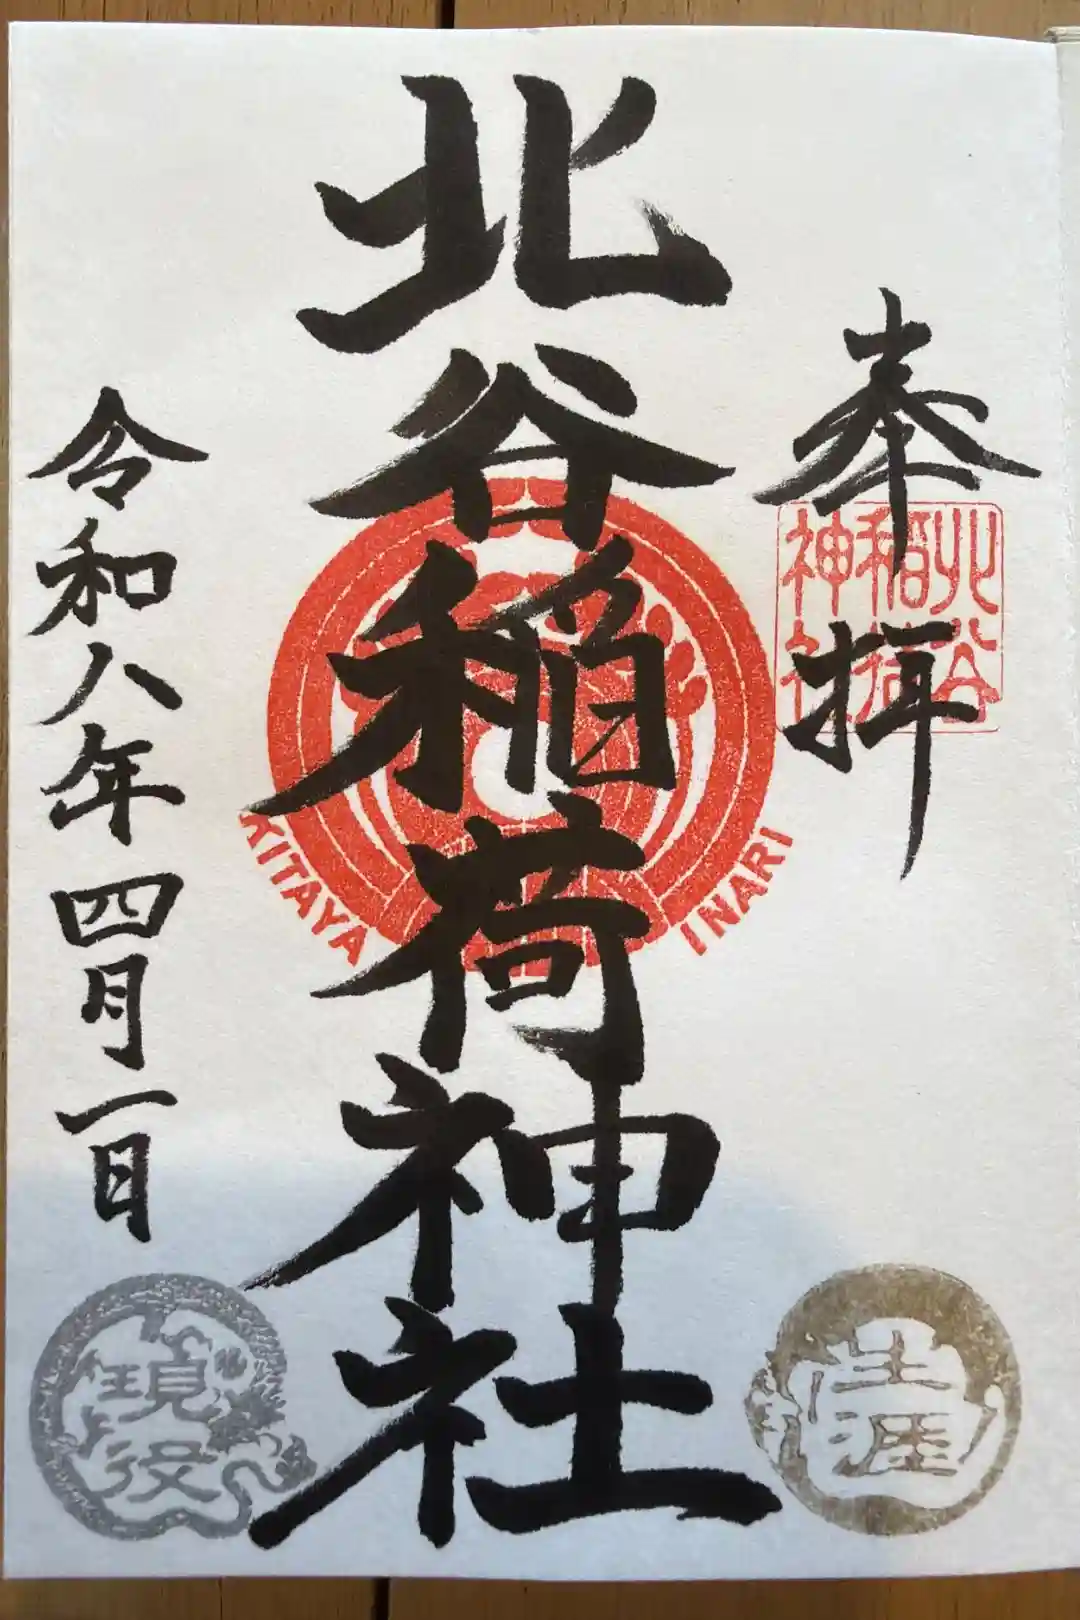 奉拝
北谷稲荷神社
北谷稲荷神社
KITAYA INARI
令和八年四月一日
生涯
現役